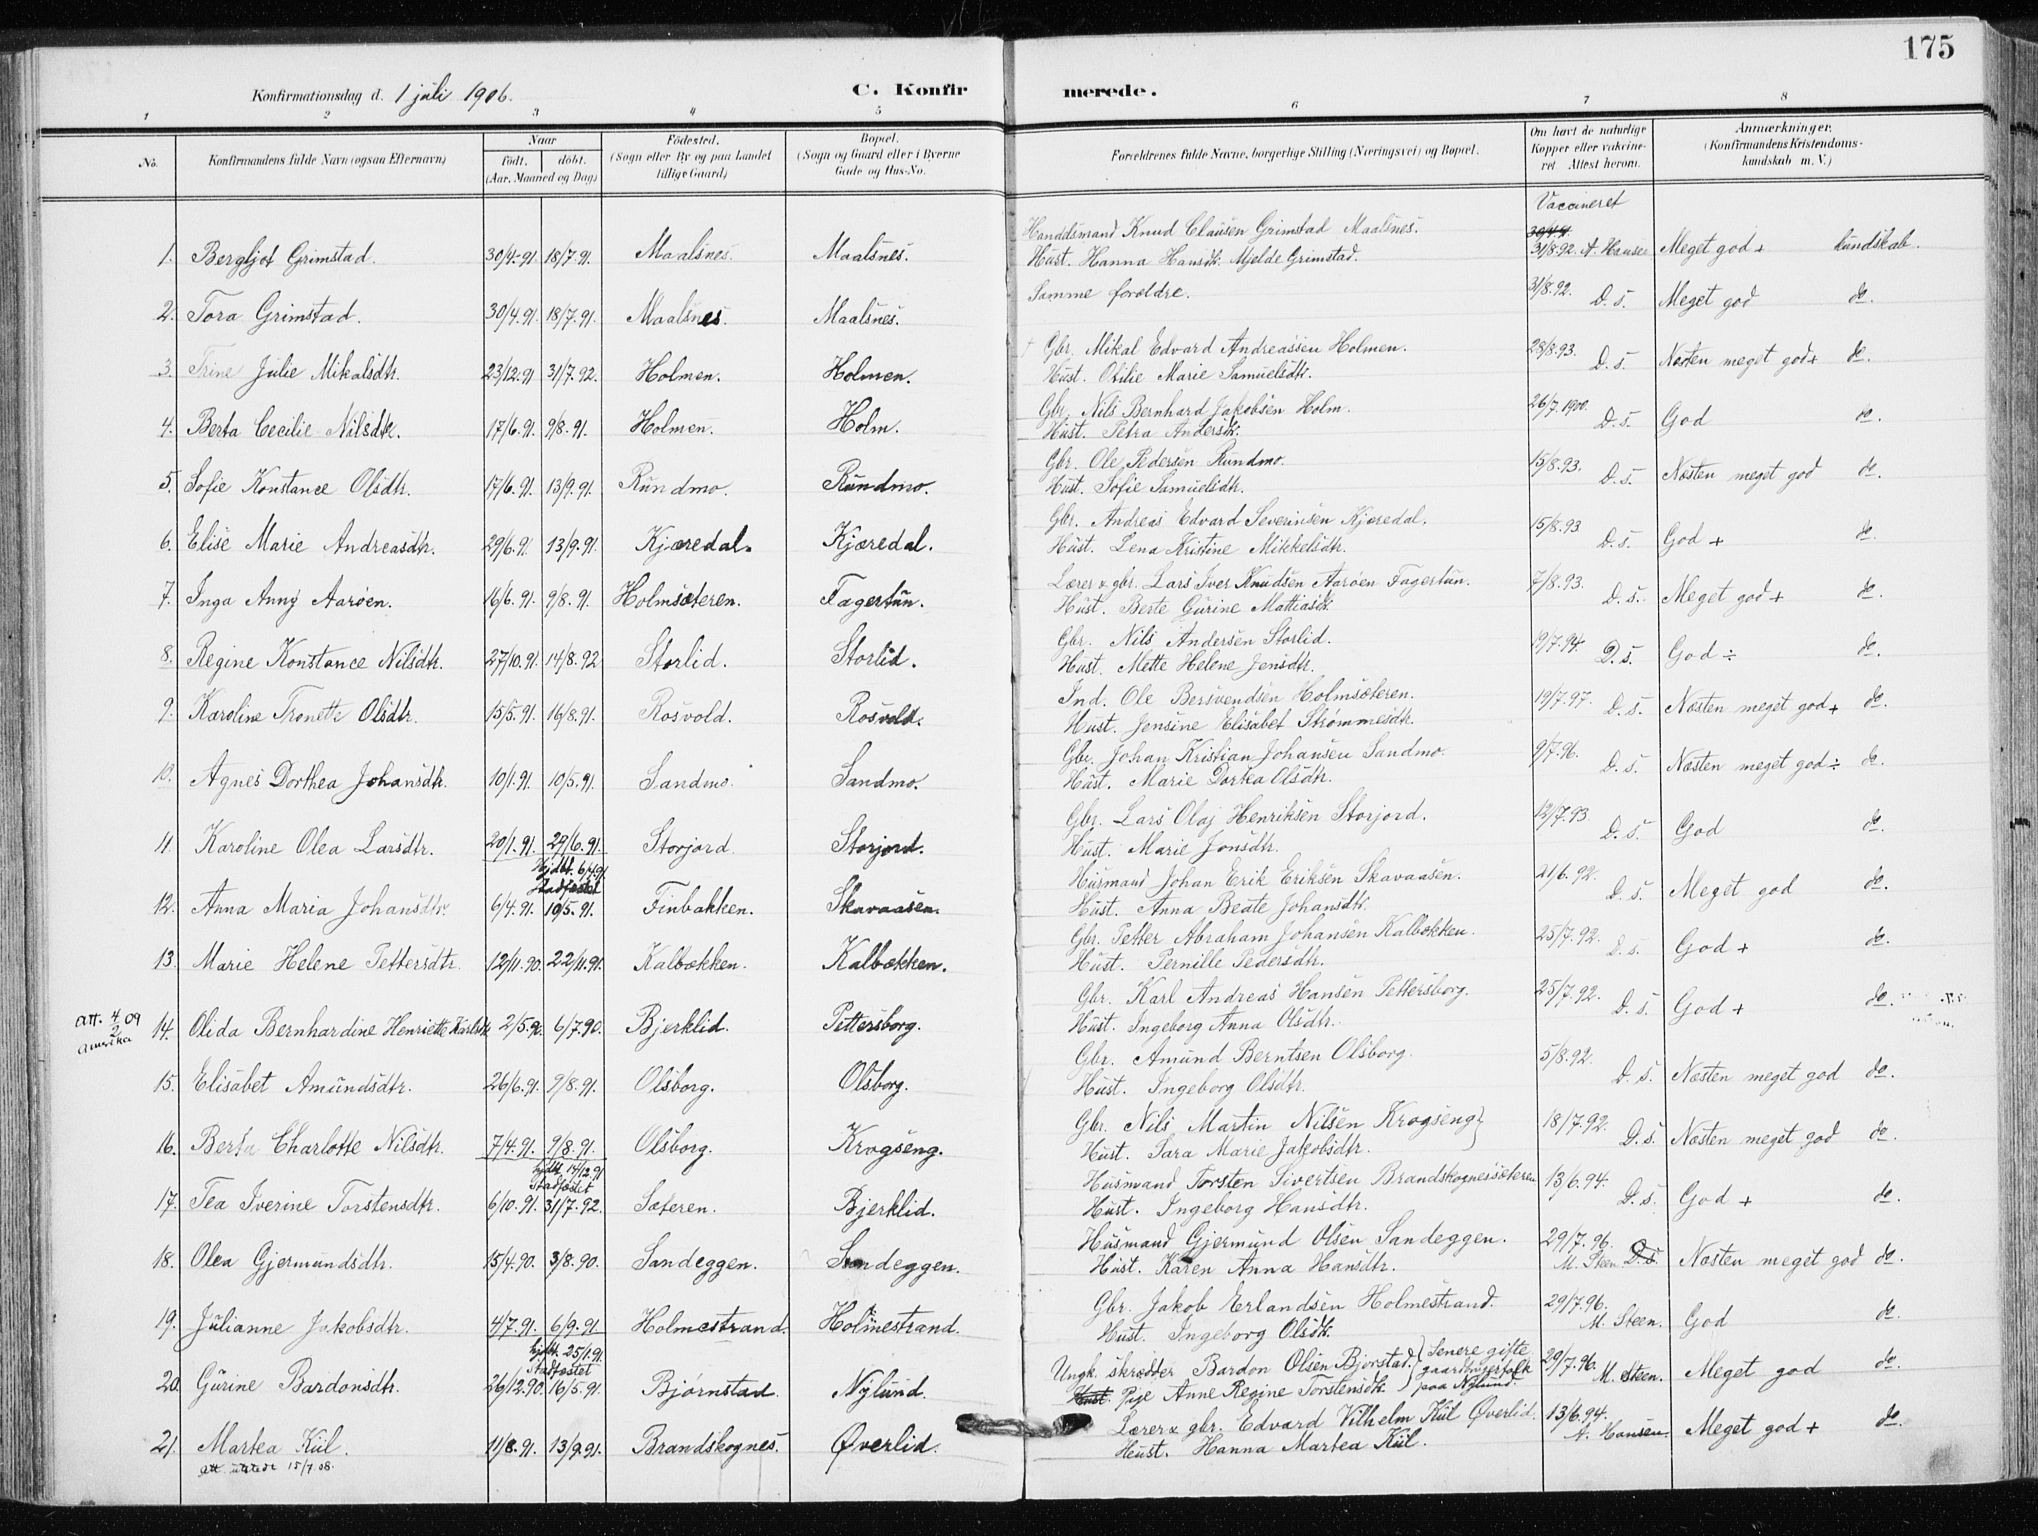 175
Konfirmationsdag d. 1 juli 1906.
C. Konfirmerede.
1 2 3 4 5 6 7 8
No. Konfirmandens fulde Navn (ogsaa Efternavn)
Naar
født. døbt.
(Aar, Maaned og Dag)
Fødested.
(Sogn eller By og paa Landet
tillige Gaard)
Bopæl.
(Sogn og Gaard eller i Byerne
Gade og Hus-No.
Forældrenes fulde Navne, borgerlige Stilling (Næringsvei) og Bopæl.
Om havt de naturlige
Kopper eller vakcine-
ret Attest herom.
Anmærkninger.
(Konfirmandens Kristendoms-
kundskab m. V.)
Vaccineret
Handelsmand Knud Clausen Grimstad Maalsnes.
1. Bergljot Grimstad. 30/4.91 18/7.91. Maalsnes. Maalsnes. Hust. Hanna Hansdtr. Mjelde Grimstad. 31/8.92. A. Hansen Meget god + kundskab.
2. Tora Grimstad. 30/4.91 18/7.91. Maalsnes. Maalsnes. Samme forældre. 31/8.92. D. s. Meget god do.
Gbr. Mikal Edvard Andreassen Holmen.
3. Trine Julie Mikalsdtr. 23/12.91 31/7.92. Holmen. Holmen. Hust. Otilie Marie Samuelsdtr. 28/8.93. D. s. Næsten meget god + do.
Gbr. Nils Bernhard Jakobsen Holm.
4. Berta Cecilie Nilsdtr. 17/6.91. 9/8.91. Holmen. Holm. Hust. Petra Andersdtr. 26/7.1900. D. s. God do.
Gbr. Ole Pedersen Rundmo.
5. Sofie Konstance Olsdtr. 17/6.91. 13/9.91. Rundmo. Rundmo. Hust. Sofie Samuelsdtr. 15/8.93. D. s. Næsten meget god do.
Gbr. Andreas Edvard Severinsen Kjæredal.
6. Elise Marie Andreasdtr. 29/6.91. 13/9.91. Kjæredal. Kjæredal. Hust. Lena Kristine Mikkelsdtr. 15/8.93 D. s. God + do.
Lærer & gbr. Lars Iver Knudsen Aarøen Fagertun.
7. Inga Anny Aarøen. 16/6.91. 9/8.91. Holmsæteren. Fagertun. Hust. Berte Gurine Mattiasdtr. 7/8.93. D. s. Meget god + do.
Gbr. Nils Andersen Storlid.
8. Regine Konstance Nilsdtr. 27/10.91. 14/8.92 Storlid. Storlid. Hust. Mette Helene Jensdtr. 19/7.94. D. s. God ÷ do.
Ind. Ole Bersvendsen Holmsæteren.
9. Karoline Tronette Olsdtr. 15/5.91. 16/8.91. Rosvold. Rosvold. Hust. Jensine Elisabet Strømmesdtr. 19/7.97. D. s. Næsten meget god + do.
Gbr. Johan Kristian Johansen Sandmo.
10. Agnes Dorthea Johansdtr. 10/1.91. 10/5.91. Sandmo. Sandmo. Hust. Marie Dortea Olsdtr. 9/7.96. D. s. Næsten meget god ÷ do.
Gbr. Lars Olaj Henriksen Storjord.
11. Karoline Olea Larsdtr. 20/1.91. 29/6.91. Storjord. Storjord. Hust. Marie Jonsdtr. 12/7.93. D. s. God do.
Hjdbt. 6/4 91
Stadfæstet
Husmand Johan Erik Eriksen Skavaasen.
12. Anna Maria Johansdtr. 6/4.91. 10/5.91. Finbakken. Skavaasen. Hust. Anna Beate Johansdtr. 21/6.92. D. s. Meget god do.
Gbr. Petter Abraham Johansen Kalbækken.
13. Marie Helene Pettersdtr. 12/11.90. 22/11.91. Kalbækken. Kalbækken. Hust. Pernille Pedersdtr. 25/7.92. D. s. God + do.
Gbr. Karl Andreas Hansen Pettersborg.
att. 4/2 09 14. Olida Bernhardine Henriette Karlsdtr. 2/5.90. 6/7.90. Bjerklid. Pettersborg. Hust. Ingeborg Anna Olsdtr. 25/7.92. D. s. God + do.
Amerika
Gbr. Amund Berntsen Olsborg.
15. Elisabet Amundsdtr. 26/6.91. 9/8.91. Olsborg. Olsborg. Hust. Ingeborg Olsdtr. 5/8.92. D. s. Næsten meget god do.
Gbr. Nils Martin Nilsen Krogseng
16. Berta Charlotte Nilsdtr. 7/4.91. 9/8.91. Olsborg. Krogseng. Hust. Sara Marie Jakobsdtr. 18/7.92. D. s. Næsten meget god do.
hjdbt. 14/12.91
Stadfæstet
Husmand Torsten Sivertsen Brandskognessæteren
17. Tea Iverine Torstensdtr. 6/10.91. 31/7.92. Sæteren. Bjerklid. Hust. Ingeborg Hansdtr. 13/6.94. D. s. God + do.
Husmand Gjermund Olsen Sandeggen.
18. Olea Gjermundsdtr. 15/4.90. 3/8.90. Sandeggen. Sandeggen. Hust. Karen Anna Hansdtr. 29/7.96. M. Steen D. s. Næsten meget god do.
Gbr. Jakob Erlandsen Holmestrand.
19. Julianne Jakobsdtr. 4/7.91. 6/9.91 Holmestrand. Holmestrand. Hust. Ingeborg Olsdtr. 29/7.96. M. Steen. God do.
hjdbt. 25/1.91.
Stadfæstet
Ungk. skrædder Bardon Olsen Bjørstad. Senere gifte
gaardbrugerfolk
paa Nylund.
20. Gurine Bardonsdtr. 26/12.90. 16/5.91. Bjørnstad. Nylund. Hust. Pige Anne Regine Torstensdtr. 29/7.96. M. Steen. Meget god do.
Lærer & gbr. Edvard Vilhelm Kiil Øverlid.
21. Martea Kiil. 11/8.91. 13/9.91. Brandskognes. Øverlid. Hust. Hanna Martea Kiil. 13/6.94. A. Hansen. Meget god + do.
att. utstedt 15/7.08.